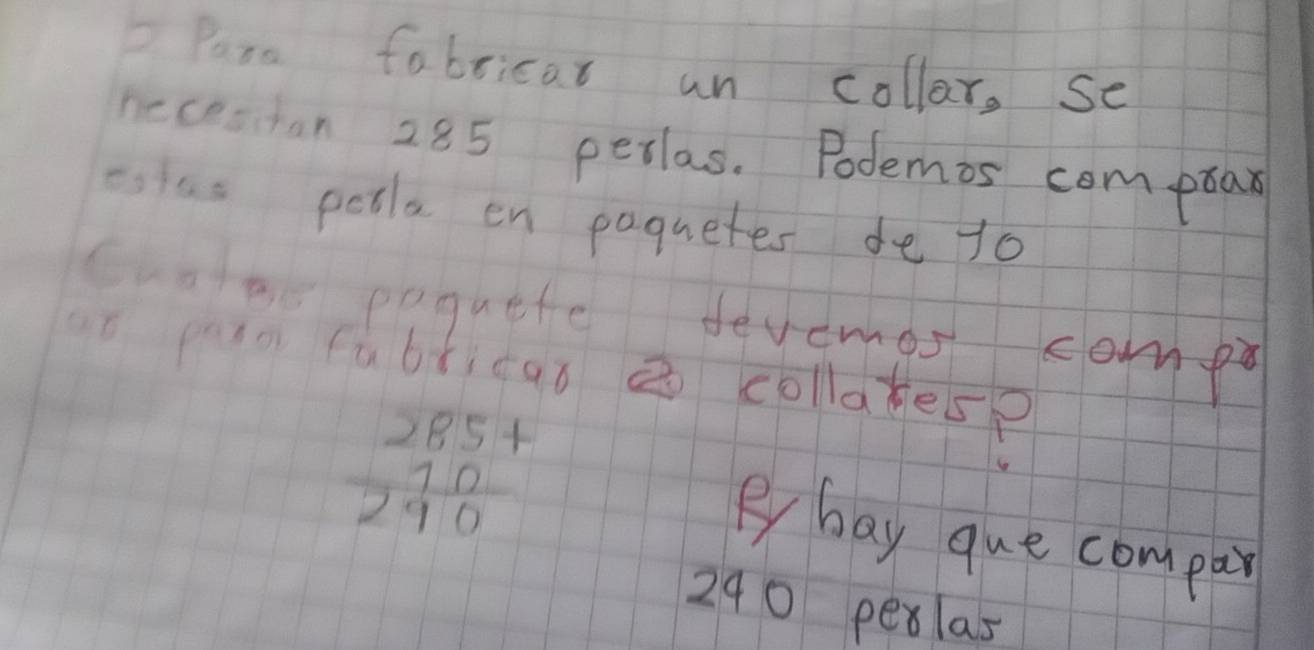 Para fabricar un collar, se
necesitan 285 perlas. Podemos comprar
estas perla en paquetes de 10
paquete devemos compr
ar para fabricar 2 collares?
285+
10
290
R/ hay que compar
290 perlas